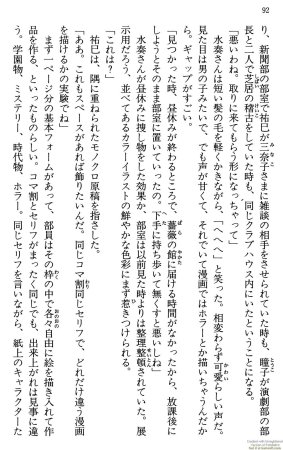 92
り、新聞部の部室で祐巳が三奈子さまに雑談の相手をさせられていた時も、瞳子が演劇部の部
長と二人で芝居の稽古をしていた時も、同じクラブハウス内にいたということになる。
「悪いわね。取りに来てもらう形になっちゃって」
水奏さんは短い髪の毛を軽くかきながら、「へへへ」と笑った。相変わらず可愛らしい声だ。
見た目は男の子みたいで、でも声が甘くて、それでいて漫画ではホラーとか描いちゃうんだか
ら。ギャップがすごい。
「見つかった時、昼休みが終わるところで、薔薇の館に届ける時間がなかったから、放課後に
しようとそのまま部室に置いていったの。下手に持ち歩いて無くすと悪いしね」
水奏さんが昼休みに捜し物をした効果か、部室は以前見た時よりは整理整頓されていた。展
示用だろう、並べてあるカラーイラストの鮮やかな色彩にまず惹きつけられる。
「これは?」
祐巳は、隅に重ねられたモノクロ原稿を指さした。
「ああ。これもスペースがあれば飾りたいんだ。同じコマ割同じセリフで、どれだけ違う漫画
を描けるかの実験でね」
まず一ページ分の基本フォームがあって、部員はその枠の中で各々自由に絵を描き入れて作
品を作る、といったものらしい。コマ割とセリフがまったく同じでも、出来上がれば見事に違
う。学園物、ミステリー、時代物、ホラー。同じセリフを言いながら、紙上のキャラクターた